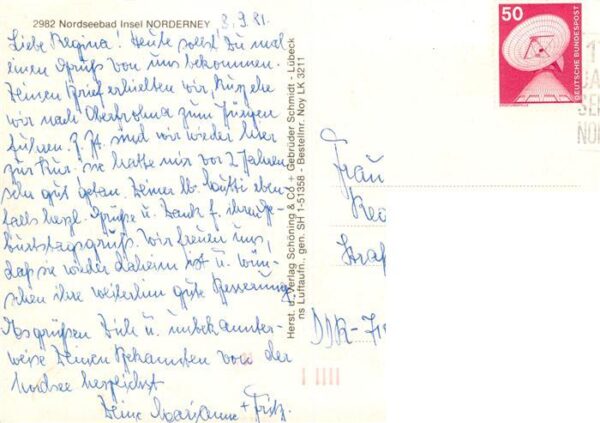 2982 Nordseebad Insel NORDERNEY 8.9.81.
Liebe Regina! Heute sollst Du mal
einen Gruß von uns bekommen.
Deinen Brief erhielten wir, kurz ehe
wir nach zum
fuhren. Z. Zt. sind wir wieder hier
zur Kur. sie hatte mir vor 2 Jahren
sehr gut getan. Deiner lb. Mutti eben-
falls herzl. Grüße u. Dank f. ihren Ge-
burtstagsgruß. Wir freuen uns,
daß sie wieder daheim ist u. wün-
schen ihr weiterhin gute Besserung
Es grüßen Dich u. unbekannter-
weise Deinen Bekannten von der
Nordsee herzlichst
Deine Marianne + Fritz.
Herst. u. Verlag Schöning & Co + Gebrüder Schmidt - Lübeck
ns Luftaufn., gen. SH 1-51358 - Bestellnr. Noy LK 3211
50
DEUTSCHE BUNDESPOST
Frau
Straß
DDR-